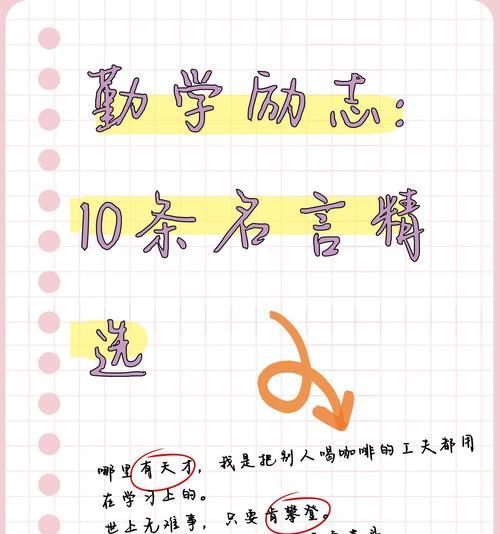 勤学励志：
10条名言精
选
哪里有天才，我是把别人喝咖啡的工夫都用
在学习上的。
世上无难事，只要肯攀登。